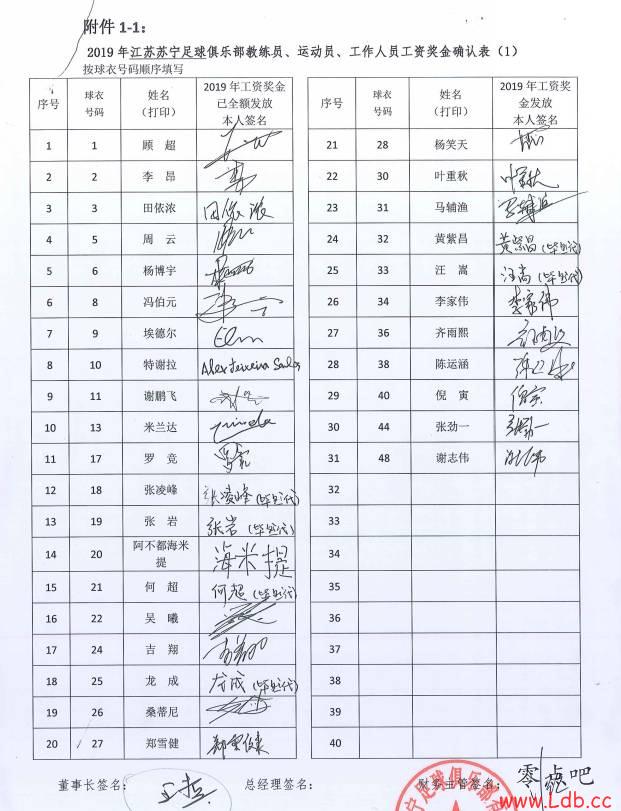 附件 1-1：
2019 年江苏苏宁足球俱乐部教练员、运动员、工作人员工资奖金确认表（1）
按球衣号码顺序填写
序号 球衣号码 姓名（打印） 2019 年工资奖金已全额发放本人签名
1 1 顾 超
2 2 李 昂
3 3 田依浓 田依浓
4 5 周 云
5 6 杨博宇
6 8 冯伯元
7 9 埃德尔
8 10 特谢拉 Alex Teixeira Santos
9 11 谢鹏飞
10 13 米兰达 miranda
11 17 罗 竞
12 18 张凌峰 张凌峰（毕处代）
13 19 张 岩 张岩（毕处代）
14 20 阿不都海米提 海米提
15 21 何 超 何超（毕处代）
16 22 吴 曦
17 24 吉 翔
18 25 龙 成 龙成（毕处代）
19 26 桑蒂尼
20 27 郑雪健
序号 球衣号码 姓名（打印） 2019 年工资奖金发放本人签名
21 28 杨笑天
22 30 叶重秋 叶重秋
23 31 马辅渔 马辅渔
24 32 黄紫昌 黄紫昌（毕处代）
25 33 汪 嵩 汪嵩（毕处代）
26 34 李家伟 李家伟
27 36 齐雨熙
28 38 陈运涵
29 40 倪 寅 倪寅
30 44 张劲一 张劲一
31 48 谢志伟
32
33
34
35
36
37
38
39
40
董事长签名： 总经理签名： 财务主管签名：
宁足球俱乐部
零点吧
www.Ldb.cc